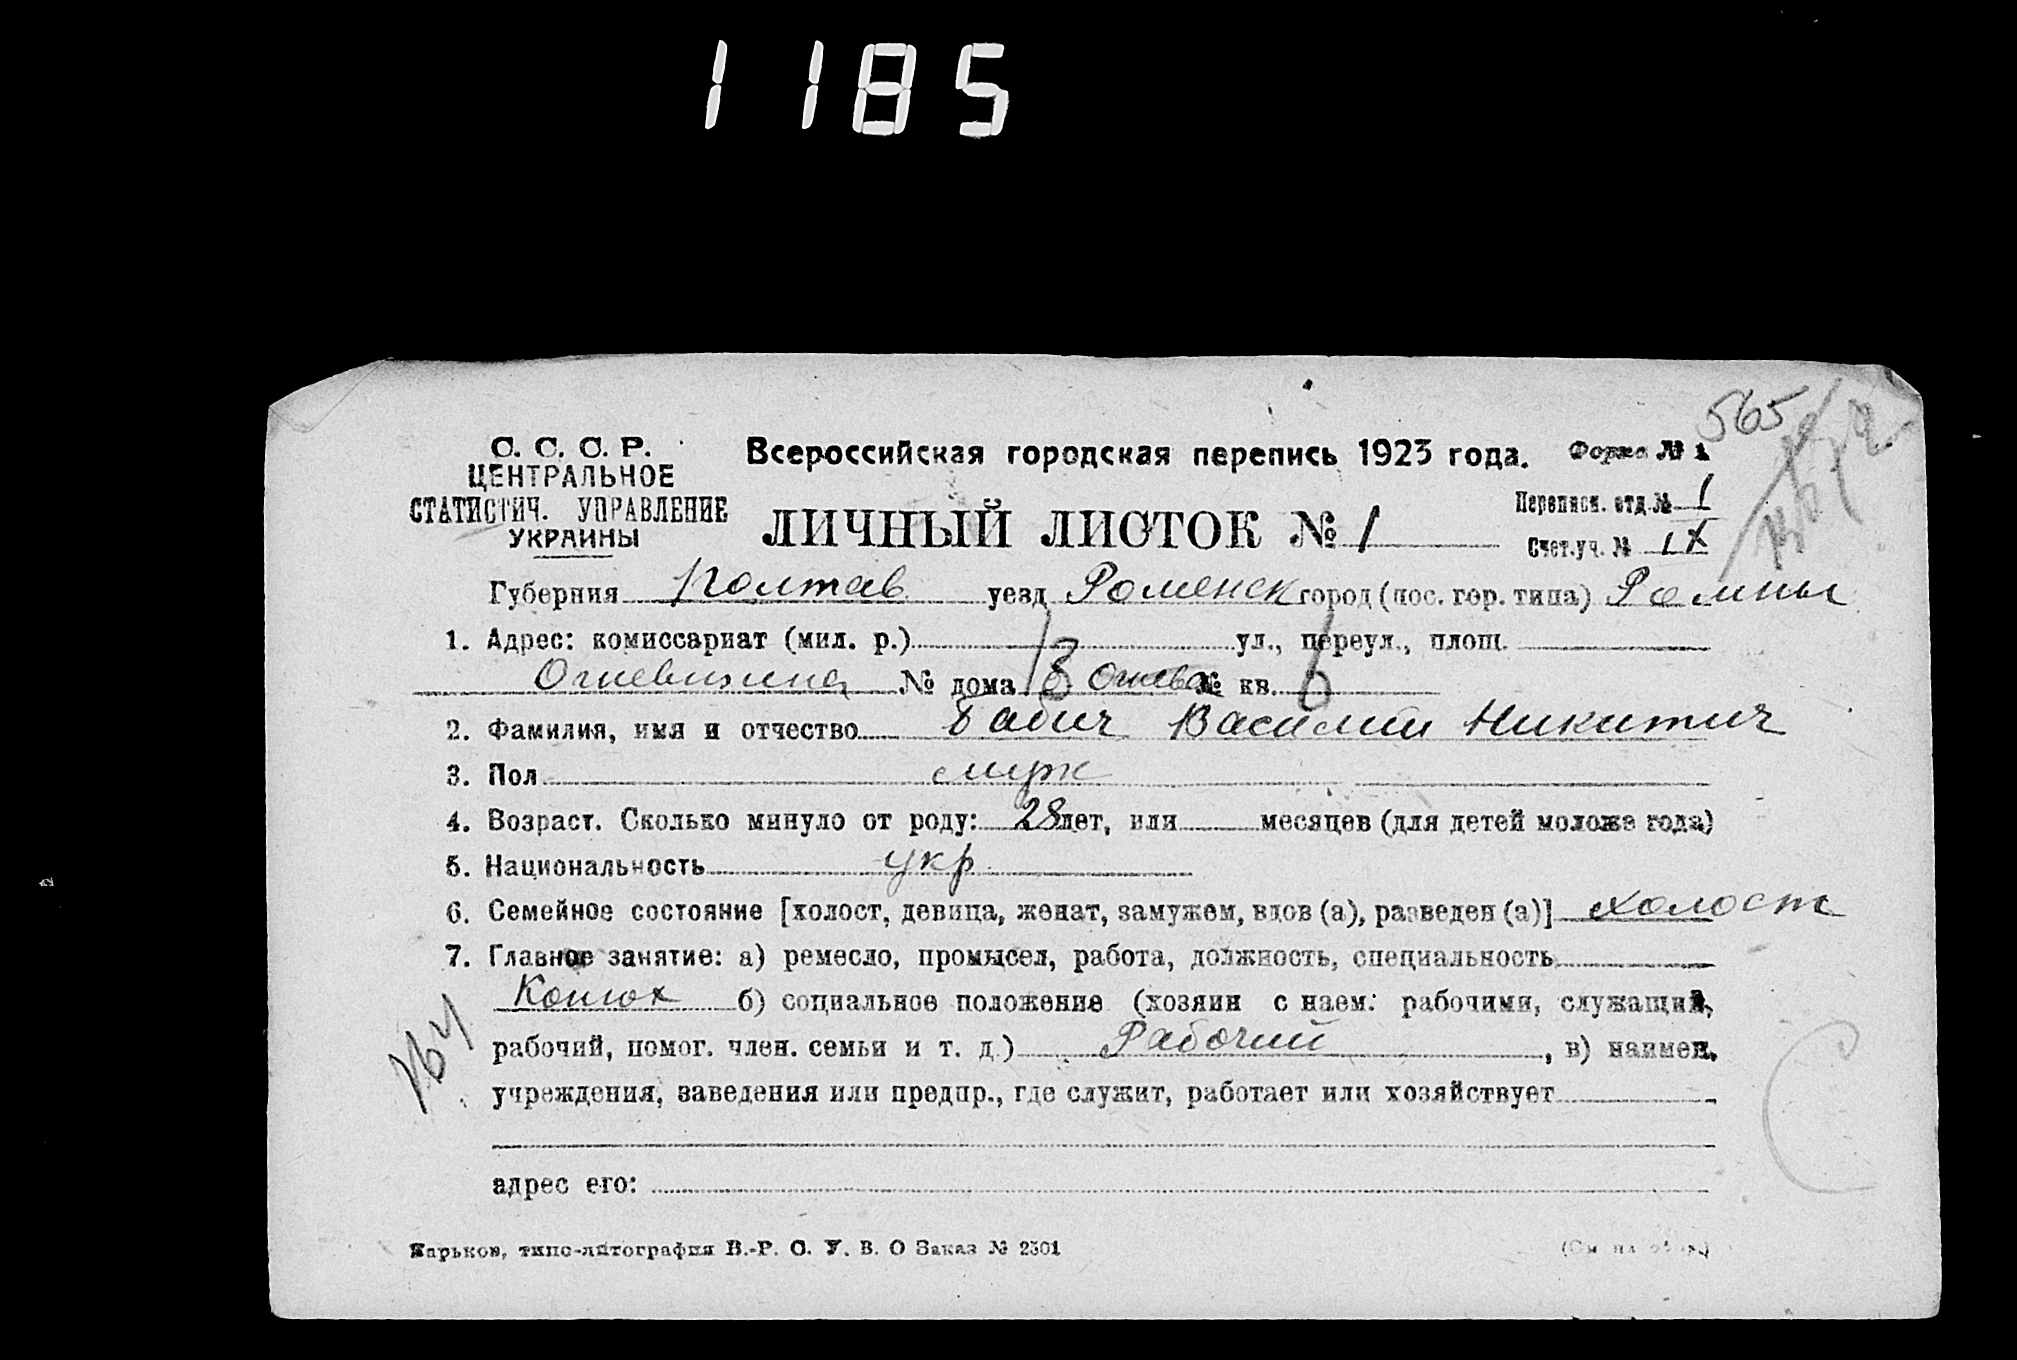 1185
565
С. С. С. Р.
ЦЕНТРАЛЬНОЕ
СТАТИСТИЧ. УПРАВЛЕНИЕ
УКРАИНЫ
Всероссийская городская перепись 1923 года. Форма № 1
ЛИЧНЫЙ ЛИСТОК № 1
Переписн. отд. № 1
Счет. уч. № IX
Губерния Полтав уезд Роменск город (пос. гор. типа) Ромны
1. Адрес: комиссариат (мил. р.) ул., переул., площ.
№ дома 13 № кв. 6
2. Фамилия, имя и отчество Бабич Василий Никитич
3. Пол муж
4. Возраст. Сколько минуло от роду: 28 лет, или месяцев (для детей моложе года)
5. Национальность укр
6. Семейное состояние [холост, девица, женат, замужем, вдов (а), разведен (а)] холост
7. Главное занятие: а) ремесло, промысел, работа, должность, специальность
Конюх б) социальное положение (хозяин с наем. рабочими, служащий,
рабочий, помог. член. семьи и т. д.) Рабочий, в) наимен.
учреждения, заведения или предпр., где служит, работает или хозяйствует
адрес его:
Харьков, типо-литография В.-Р. С. У. В. О Заказ № 2301